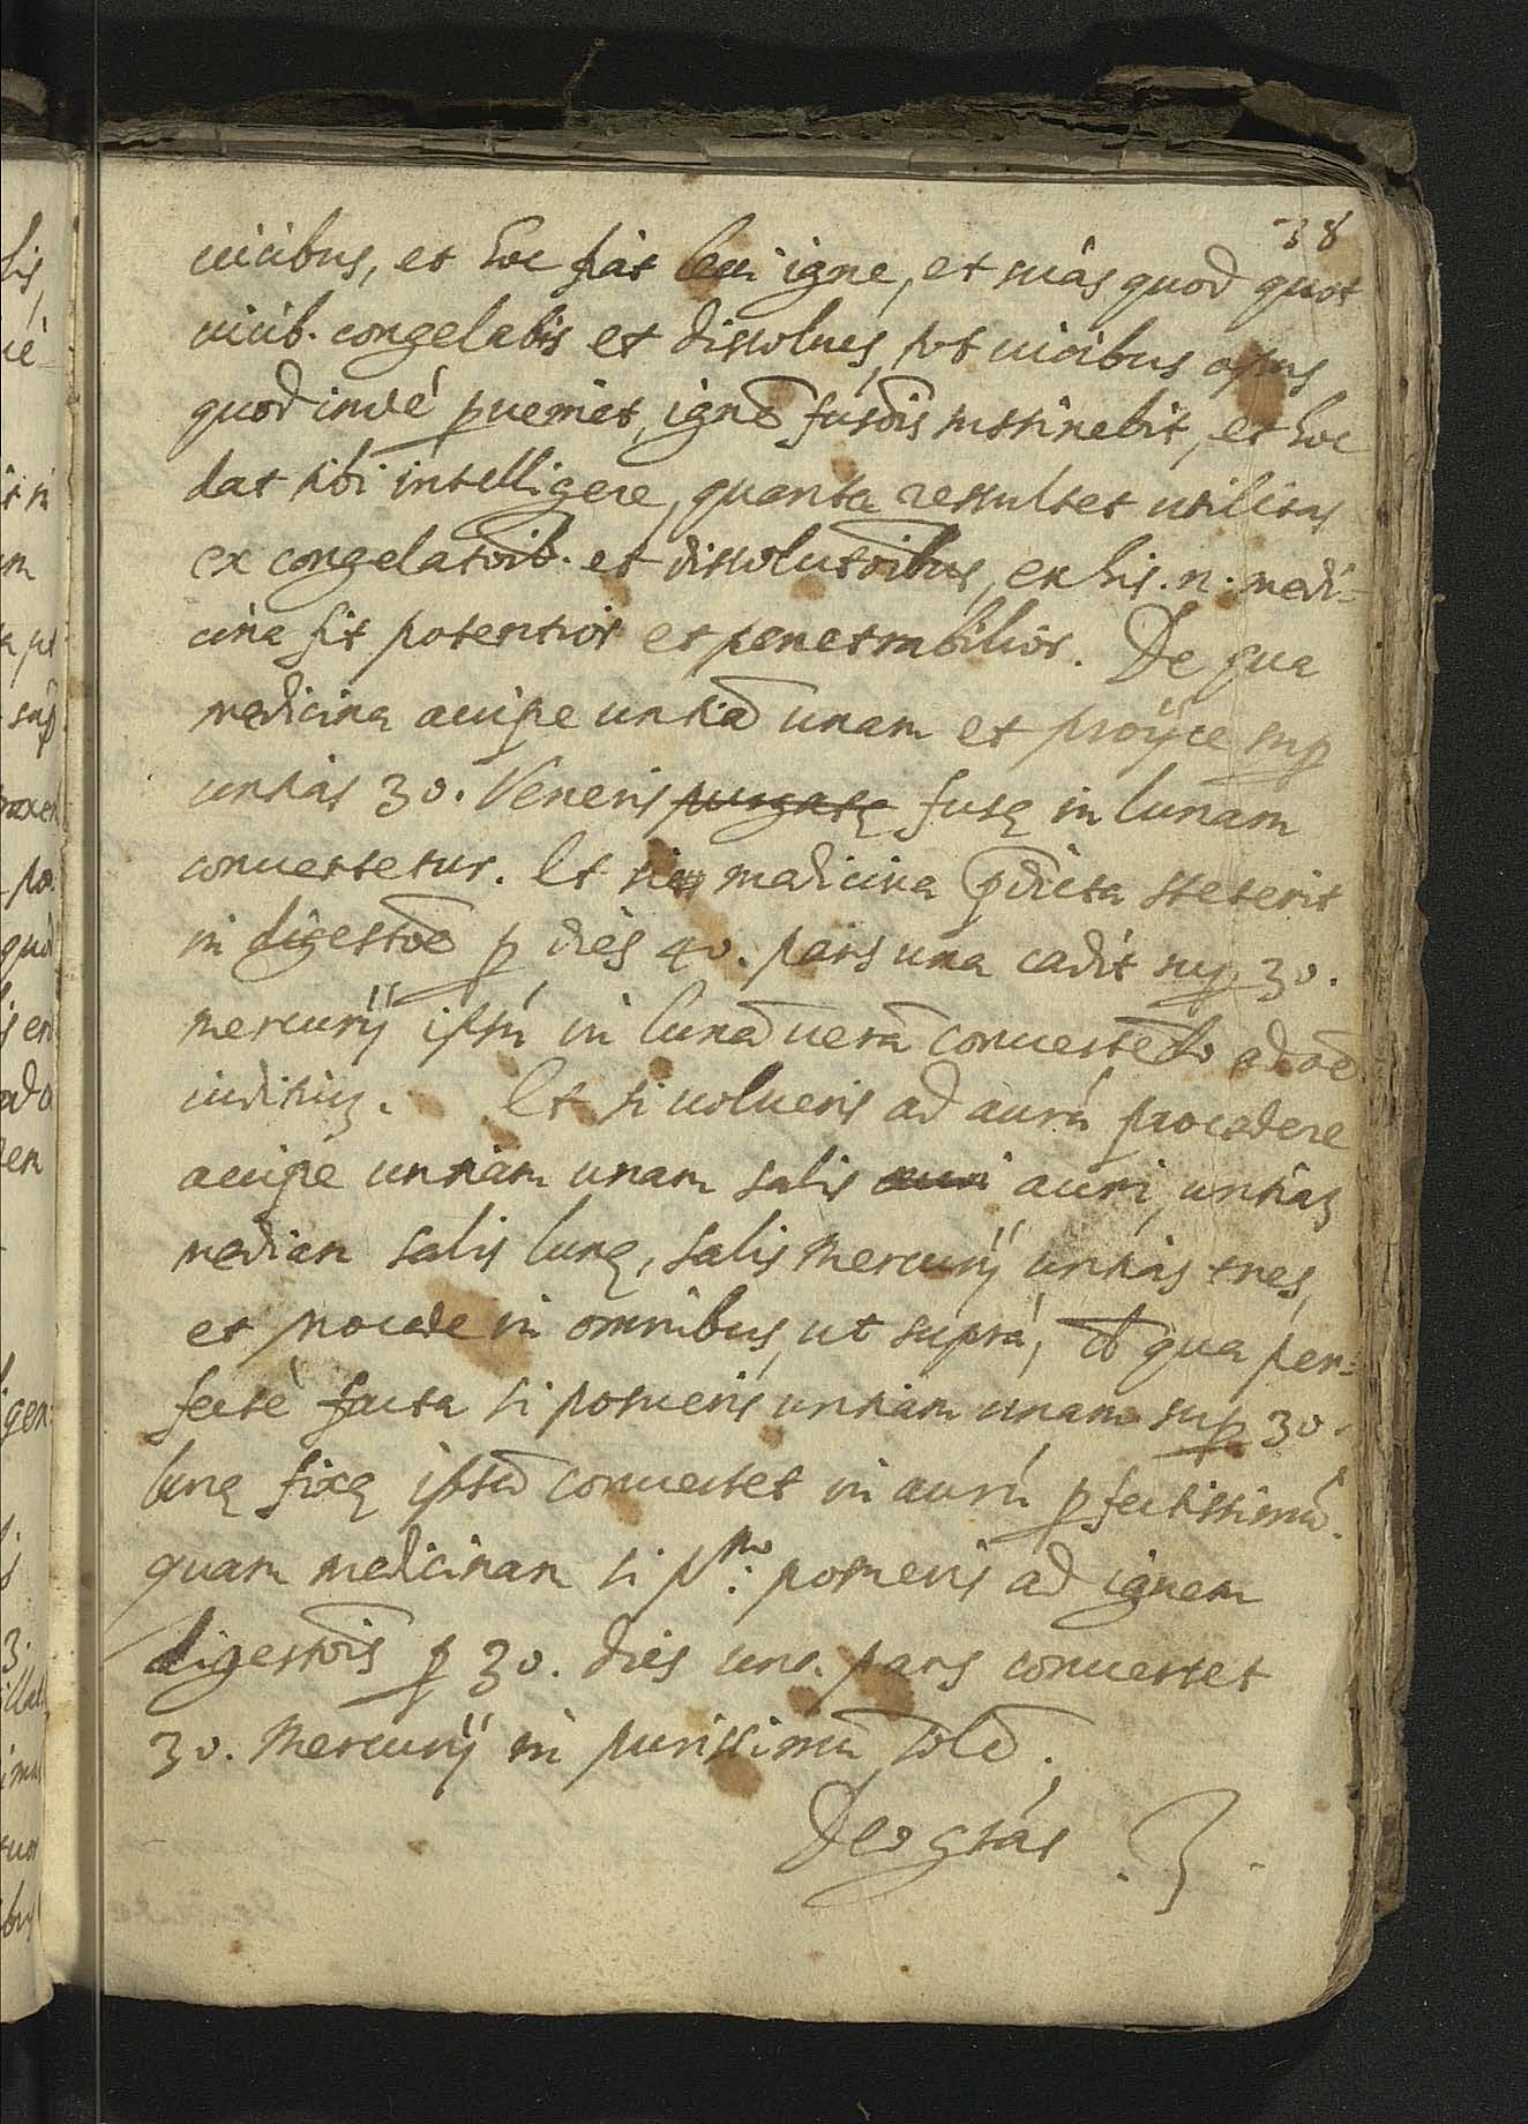 38
uicibus, et hoc fiat leui igne, et scias quod quot
uicib. congelabis et dissolues, tot uicibus opus
quod indè ꝑueniet, ignē fusõis sustinebit, et hoc
dat tibi intelligere, quanta resultet utilitas
ex congelatõib. et dissolutõibus, ex his .n. medi=
cina fit potentior et penetrabilior. De qua
medicina accipe untiã unam et proijce suꝑ
untias 30. Veneris purgatę fusę in lunam
conuertetur. Et si medicina p̃dicta steterit
in digestõe ꝑ dies 40. pars una cadit suꝑ 30.
mercurij ipsũ in lunã uerã conuertẽdo ad oẽ
iuditiũ. Et si uolueris ad aurũ procedere
accipe untiam unam salis auri auri, untiaʒ
mediam salis lunę, salis Mercurij untias tres,
et procede in omnibus, ut suprà, qua per=
fectè facta si posueris untiam unam suꝑ 30.
lunę fixę ipsã conuertet in aurũ ꝑfectissimũ.
quam medicinam si posueris ad ignem
digestõis ꝑ 30. dies una pars conuertet
30. Mercurij in purissimũ solẽ.
Deo grãs